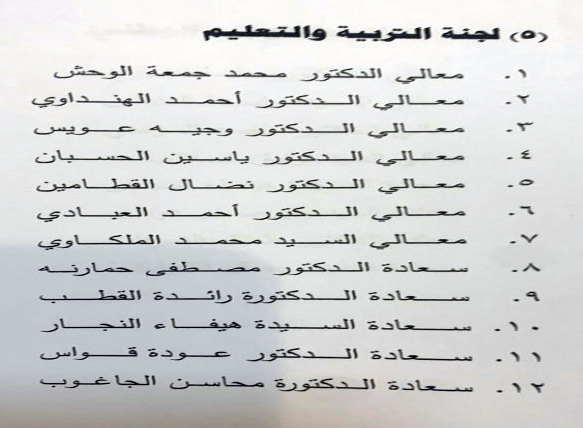 (٥) لجنة التربية والتعليم
١. معالي الدكتور محمد جمعة الوحش
٢. معالي الدكتور أحمد الهنداوي
٣. معالي الدكتور وجيه عويس
٤. معالي الدكتور ياسين الحسبان
٥. معالي الدكتور نضال القطامين
٦. معالي الدكتور أحمد العبادي
٧. معالي السيد محمد الملكاوي
٨. سعادة الدكتور مصطفى حمارنه
٩. سعادة الدكتورة رائدة القطب
١٠. سعادة السيدة هيفاء النجار
١١. سعادة الدكتور عودة قواس
١٢. سعادة الدكتورة محاسن الجاغوب